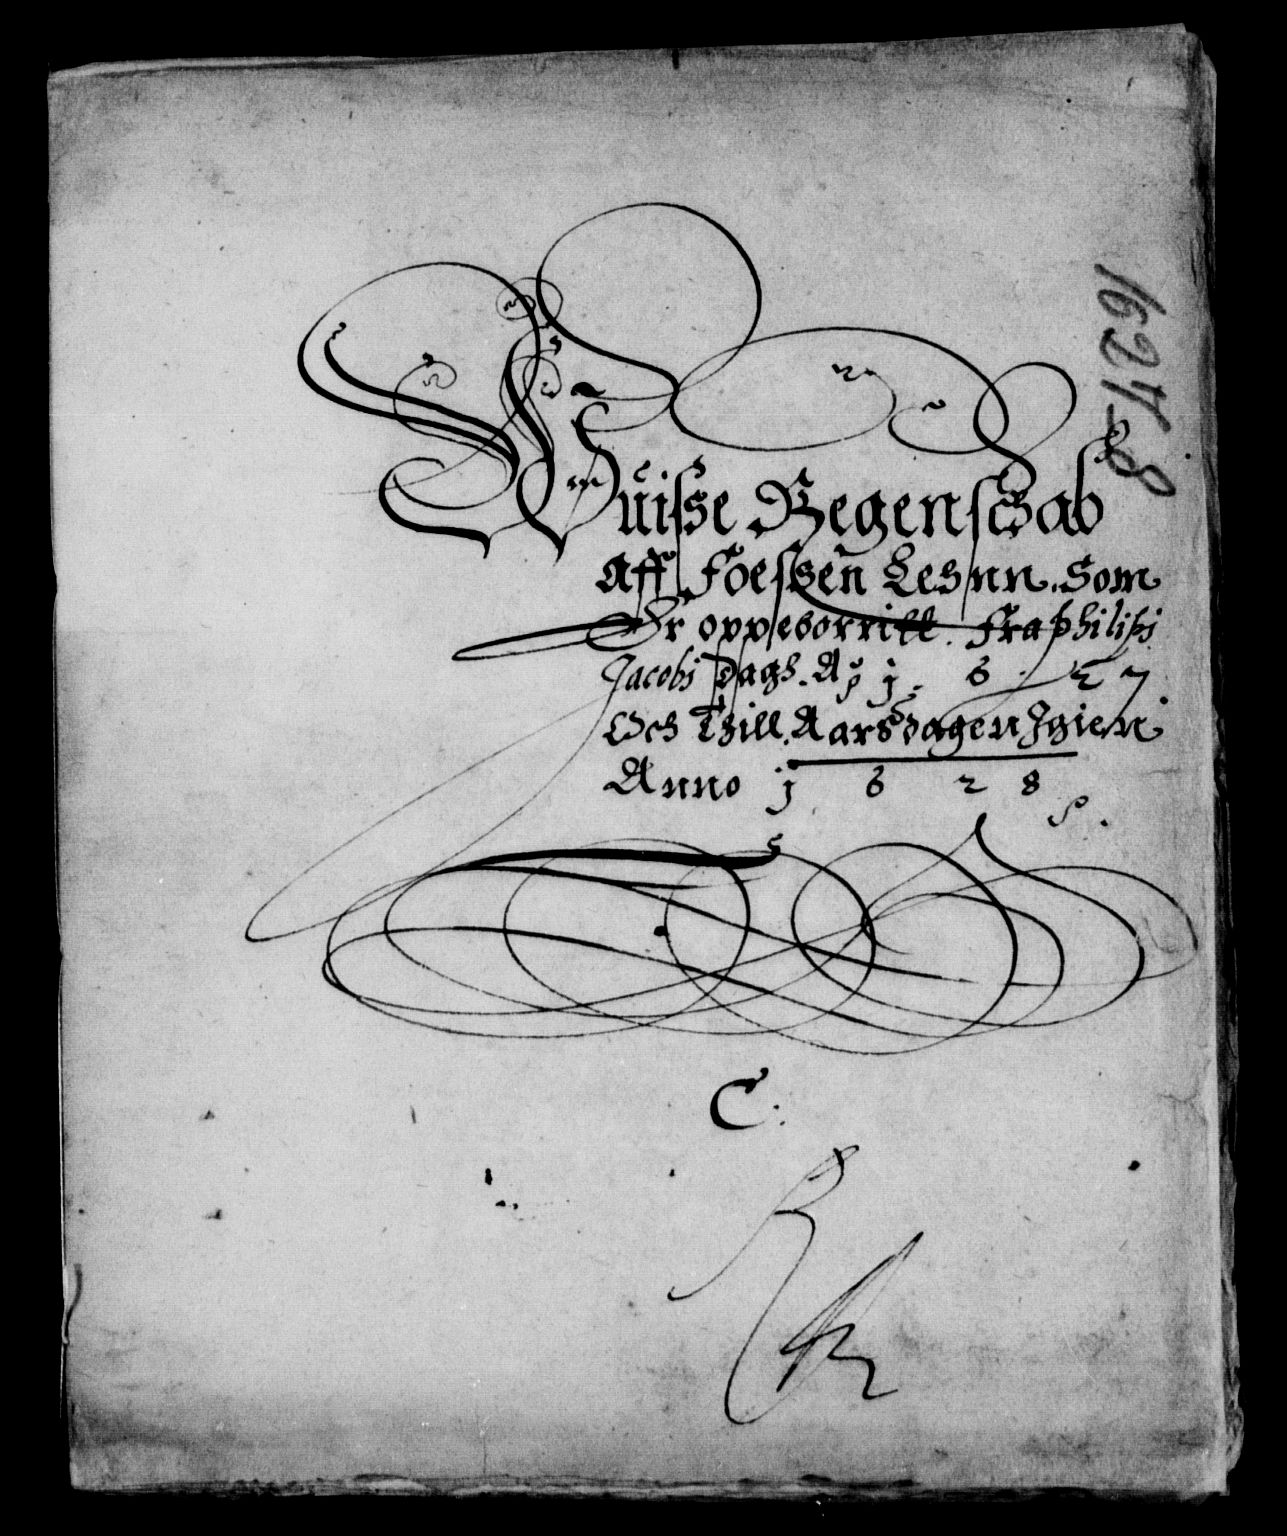 1627_8
Wüisse Regenschab
Aff Foessen Lehnn. Som
Er oppeborritt. Fra philipi
Jacobi dagh. Ao 1. 6. 27
Och Thill Aarsdagen Igien
Anno 1 6 2 8
C.